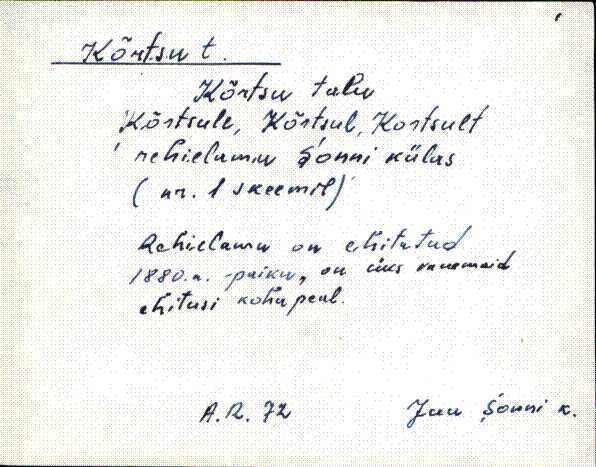 Kõrtsu t.
Kõrtsu talu
Kõrtsule, Kõrtsul, Kortsult
rehielamu Šonni külas
(nr. 1 skeemil)
Rehielamu on ehitatud
1880.a. paiku, on üks vanemaid
ehitusi kohapeal.
A.R. 72 Jaa Šonni k.